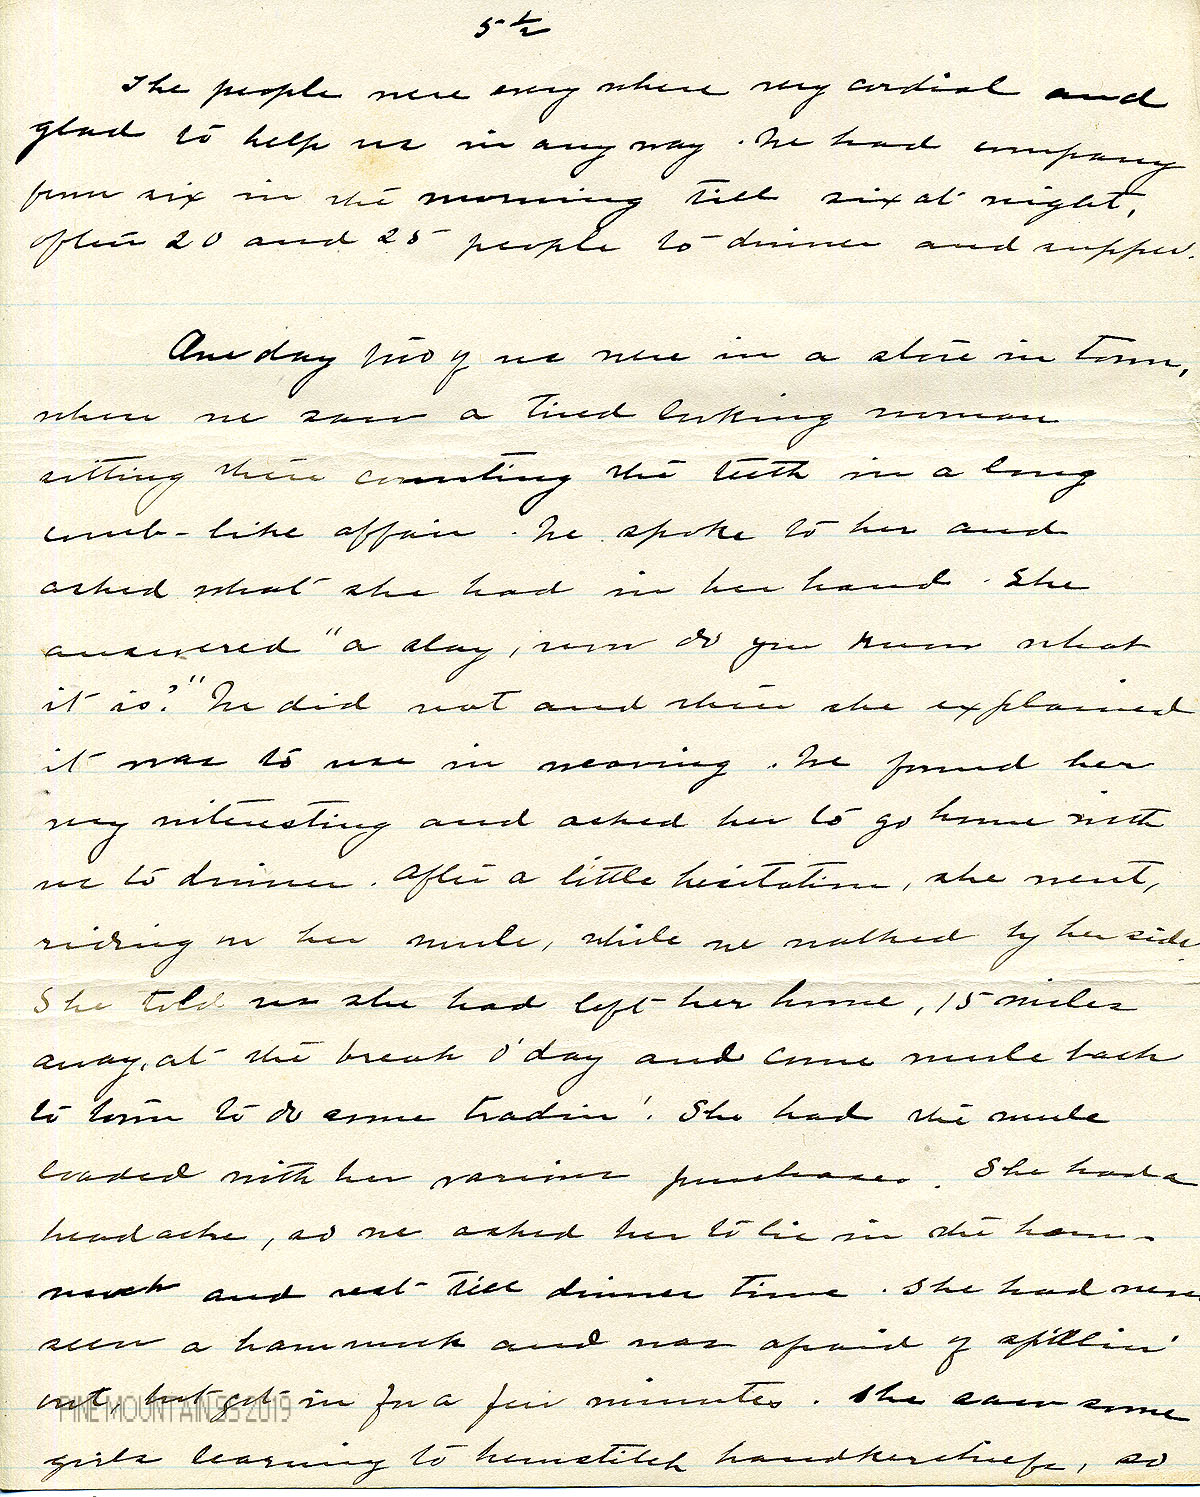 5 1/2
The people were every where very cordial and
glad to help us in any way. We had company
from six in the morning till six at night,
often 20 and 25 people to dinner and supper.
One day two of us were in a store in town,
where we saw a tired looking woman
sitting there counting the teeth in a long
comb-like affair. We spoke to her and
asked what she had in her hand. She
answered "a slay, now do you know what
it is?" We did not and then she explained
it was to use in weaving. We found her
very interesting and asked her to go home with
us to dinner. After a little hesitation, she went,
riding on her mule, while we walked by her side.
She told us she had left her home, 15 miles
away, at the break o'day and come mule back
to town to do some tradin'. She had the mule
loaded with her various purchases. She had a
headache, so we asked her to lie in the ham-
mock and rest till dinner time. She had never
seen a hammock and was afraid of spillin'
out, but got in for a few minutes. She saw some
PINE MOUNTAIN SS 2019
girls learning to hemstitch handkerchiefs, so